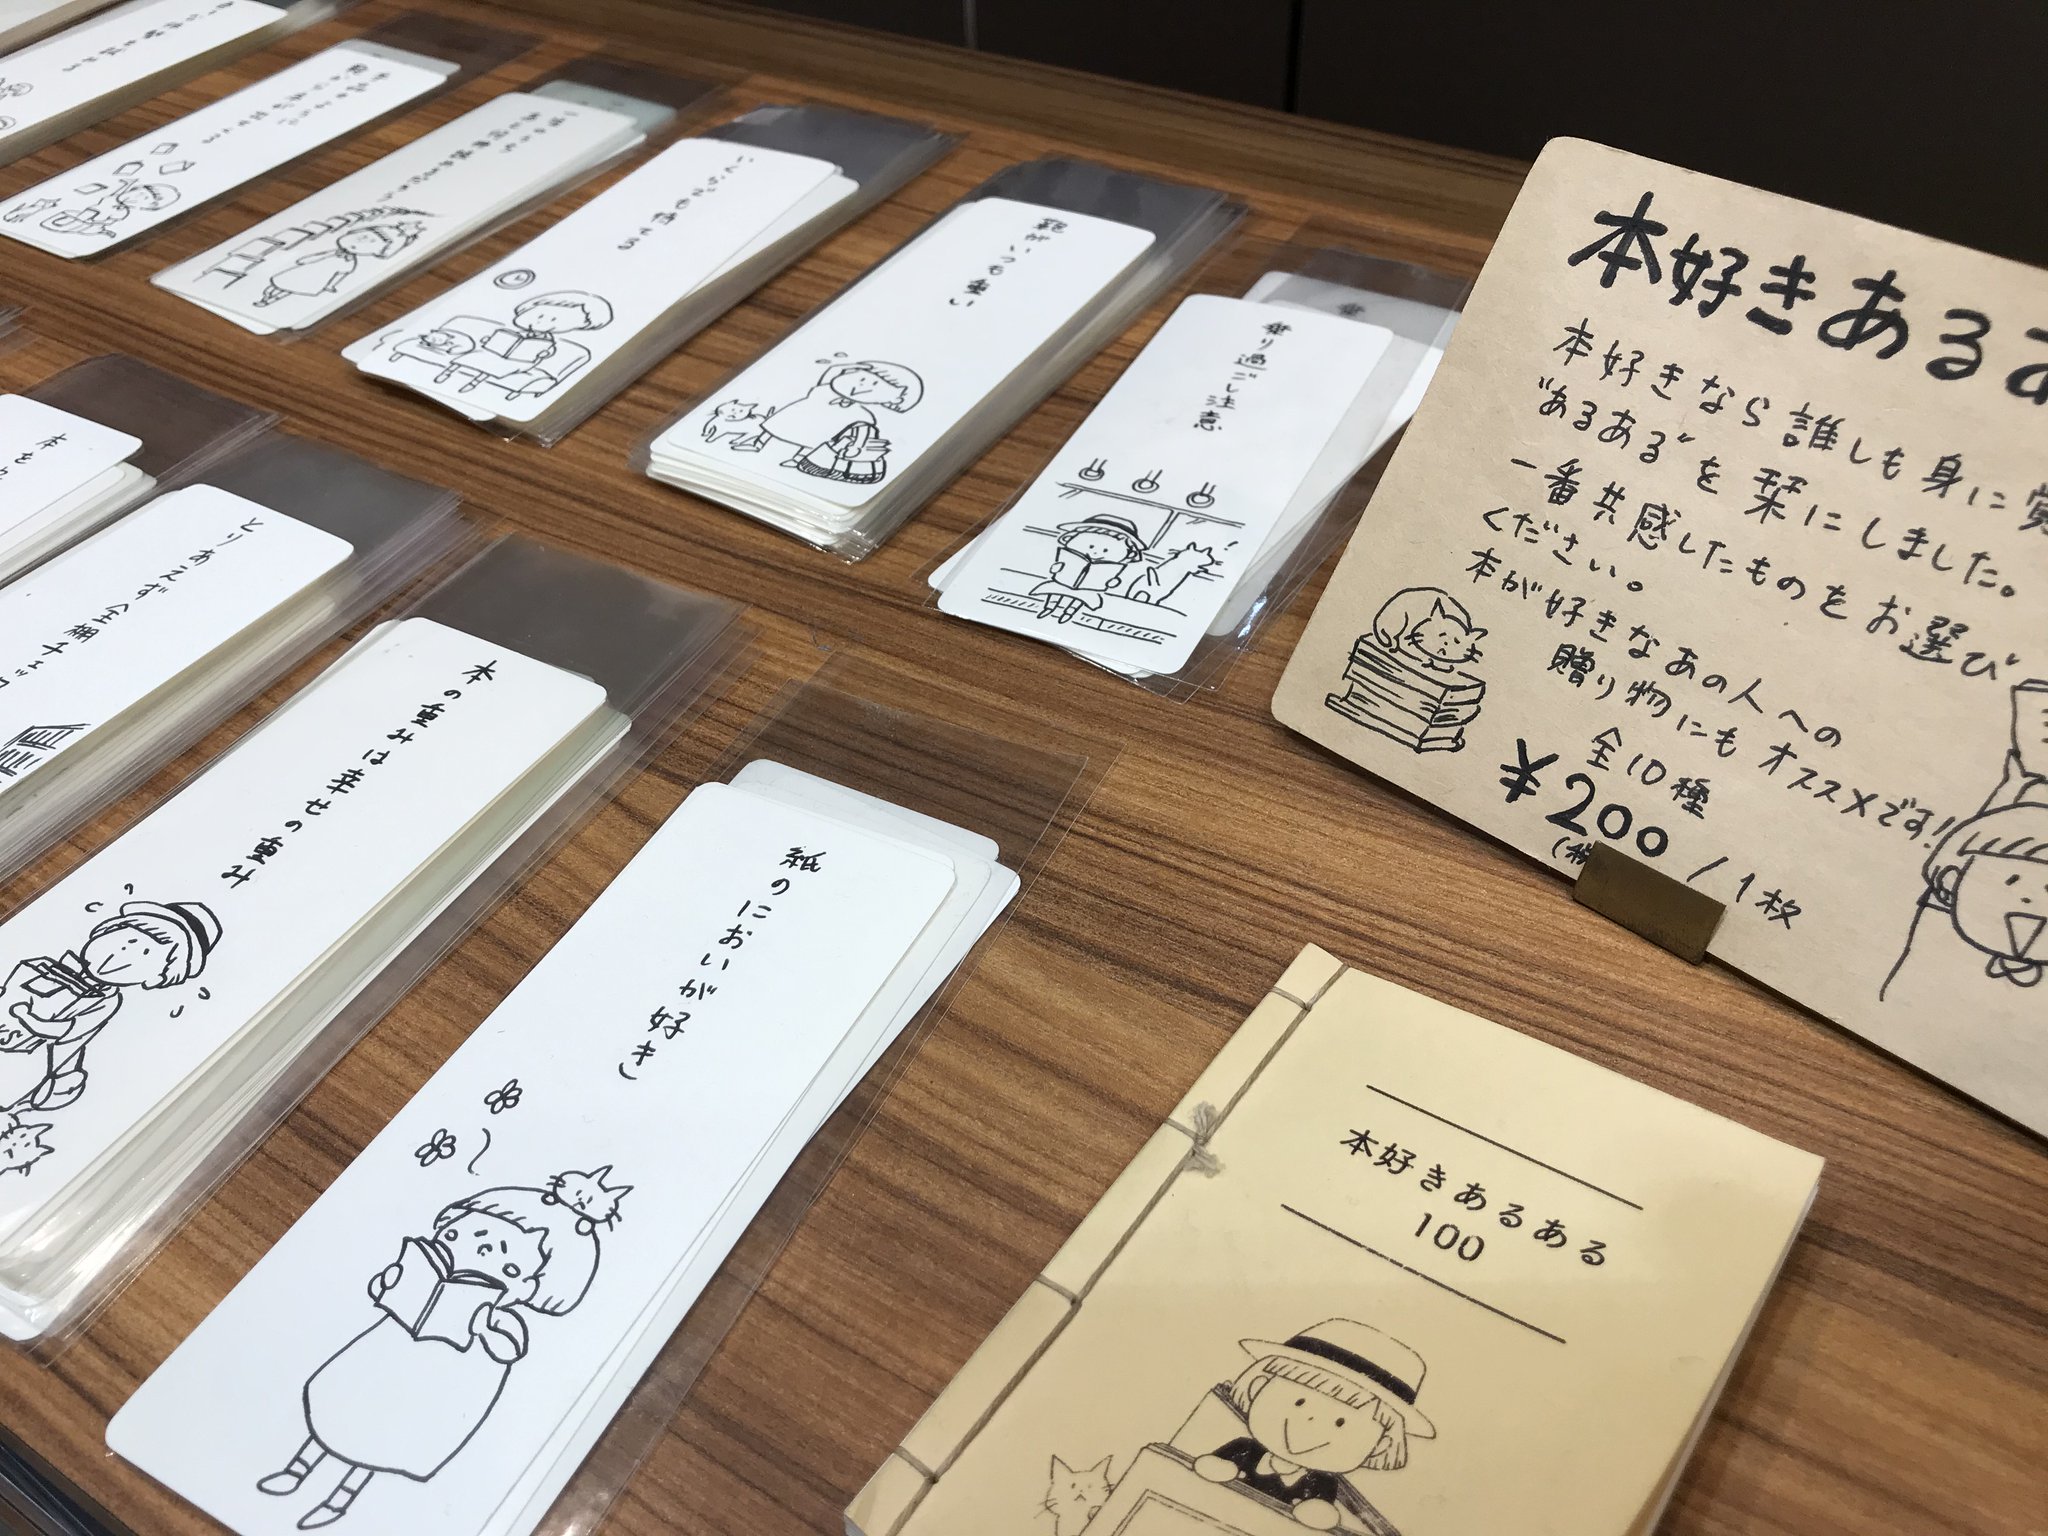 本好きある
本好きなら誰しも身に
"あるある"を栞にしました。
一番共感したものをお選び
ください。
本が好きなあの人への
贈り物にもオススメです!
全10種
¥200/1枚
本好きあるある
100
いくらでも待てる
鞄がいつも重い
乗り過ごし注意
とりあえず全棚チェッ
本の重みは幸せの重み
紙のにおいが好き
本を